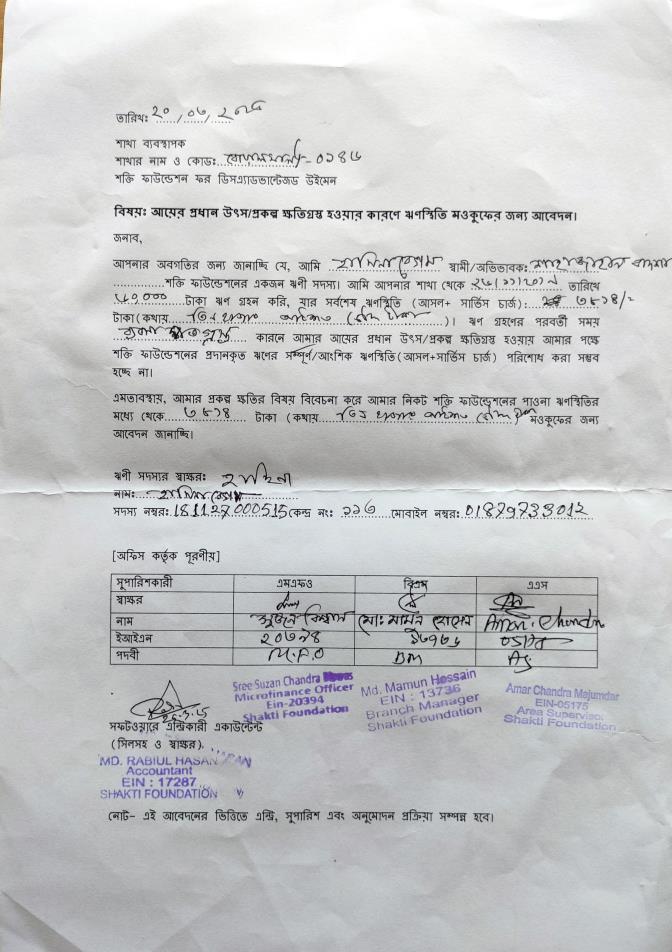 তারিখ: ২০/০৬/২
শাখা ব্যবস্থাপক
শাখার নাম ও কোড: -০১৪৬
শক্তি ফাউন্ডেশন ফর ডিসএ্যাডভান্টেজড উইমেন
বিষয়: আয়ের প্রধান উৎস/প্রকল্প ক্ষতিগ্রস্ত হওয়ার কারণে ঋণস্থিতি মওকুফের জন্য আবেদন।
জনাব,
আপনার অবগতির জন্য জানাচ্ছি যে, আমি হাসিনা বেগম স্বামী/অভিভাবক:
শক্তি ফাউন্ডেশনের একজন ঋণী সদস্য। আমি আপনার শাখা থেকে তারিখে
টাকা ঋণ গ্রহন করি, যার সর্বশেষ ঋণস্থিতি (আসল+ সার্ভিস চার্জ):
টাকা(কথায় তিন হাজার )। ঋণ গ্রহণের পরবর্তী সময়
কারনে আমার আয়ের প্রধান উৎস/প্রকল্প ক্ষতিগ্রস্ত হওয়ায় আমার পক্ষে
শক্তি ফাউন্ডেশনের প্রদানকৃত ঋণের সম্পূর্ণ/আংশিক ঋণস্থিতি(আসল+সার্ভিস চার্জ) পরিশোধ করা সম্ভব
হচ্ছে না।
এমতাবস্থায়, আমার প্রকল্প ক্ষতির বিষয় বিবেচনা করে আমার নিকট শক্তি ফাউন্ডেশনের পাওনা ঋণস্থিতির
মধ্যে থেকে টাকা (কথায় তিন হাজার মওকুফের জন্য
আবেদন জানাচ্ছি।
ঋণী সদস্যর স্বাক্ষর: হাছিনা
নাম: হাসিনা বেগম
সদস্য নম্বর: 181127000515 কেন্দ্র নং: ১১৬ মোবাইল নম্বর: 01879733012
[অফিস কর্তৃক পূরণীয়]
সুপারিশকারী এমএফও বিএম এএস
স্বাক্ষর
নাম মো: মামুন হোসেন Amar Chandra
ইআইএন ২০৩৯৪ ১৩৭৩৬ 05175
পদবী M.F.O BM AS
Sree Suzan Chandra
Microfinance Officer
Ein-20394
Shakti Foundation
Md. Mamun Hossain
EIN : 13736
Branch Manager
Shakti Foundation
Amar Chandra Majumdar
EIN-05175
Area Supervisor
Shakti Foundation
সফটওয়ারে এন্ট্রিকারী একাউন্টেন্ট
(সিলসহ ও স্বাক্ষর)
MD. RABIUL HASAN
Accountant
EIN : 17287
SHAKTI FOUNDATION
নোট- এই আবেদনের ভিত্তিতে এন্ট্রি, সুপারিশ এবং অনুমোদন প্রক্রিয়া সম্পন্ন হবে।